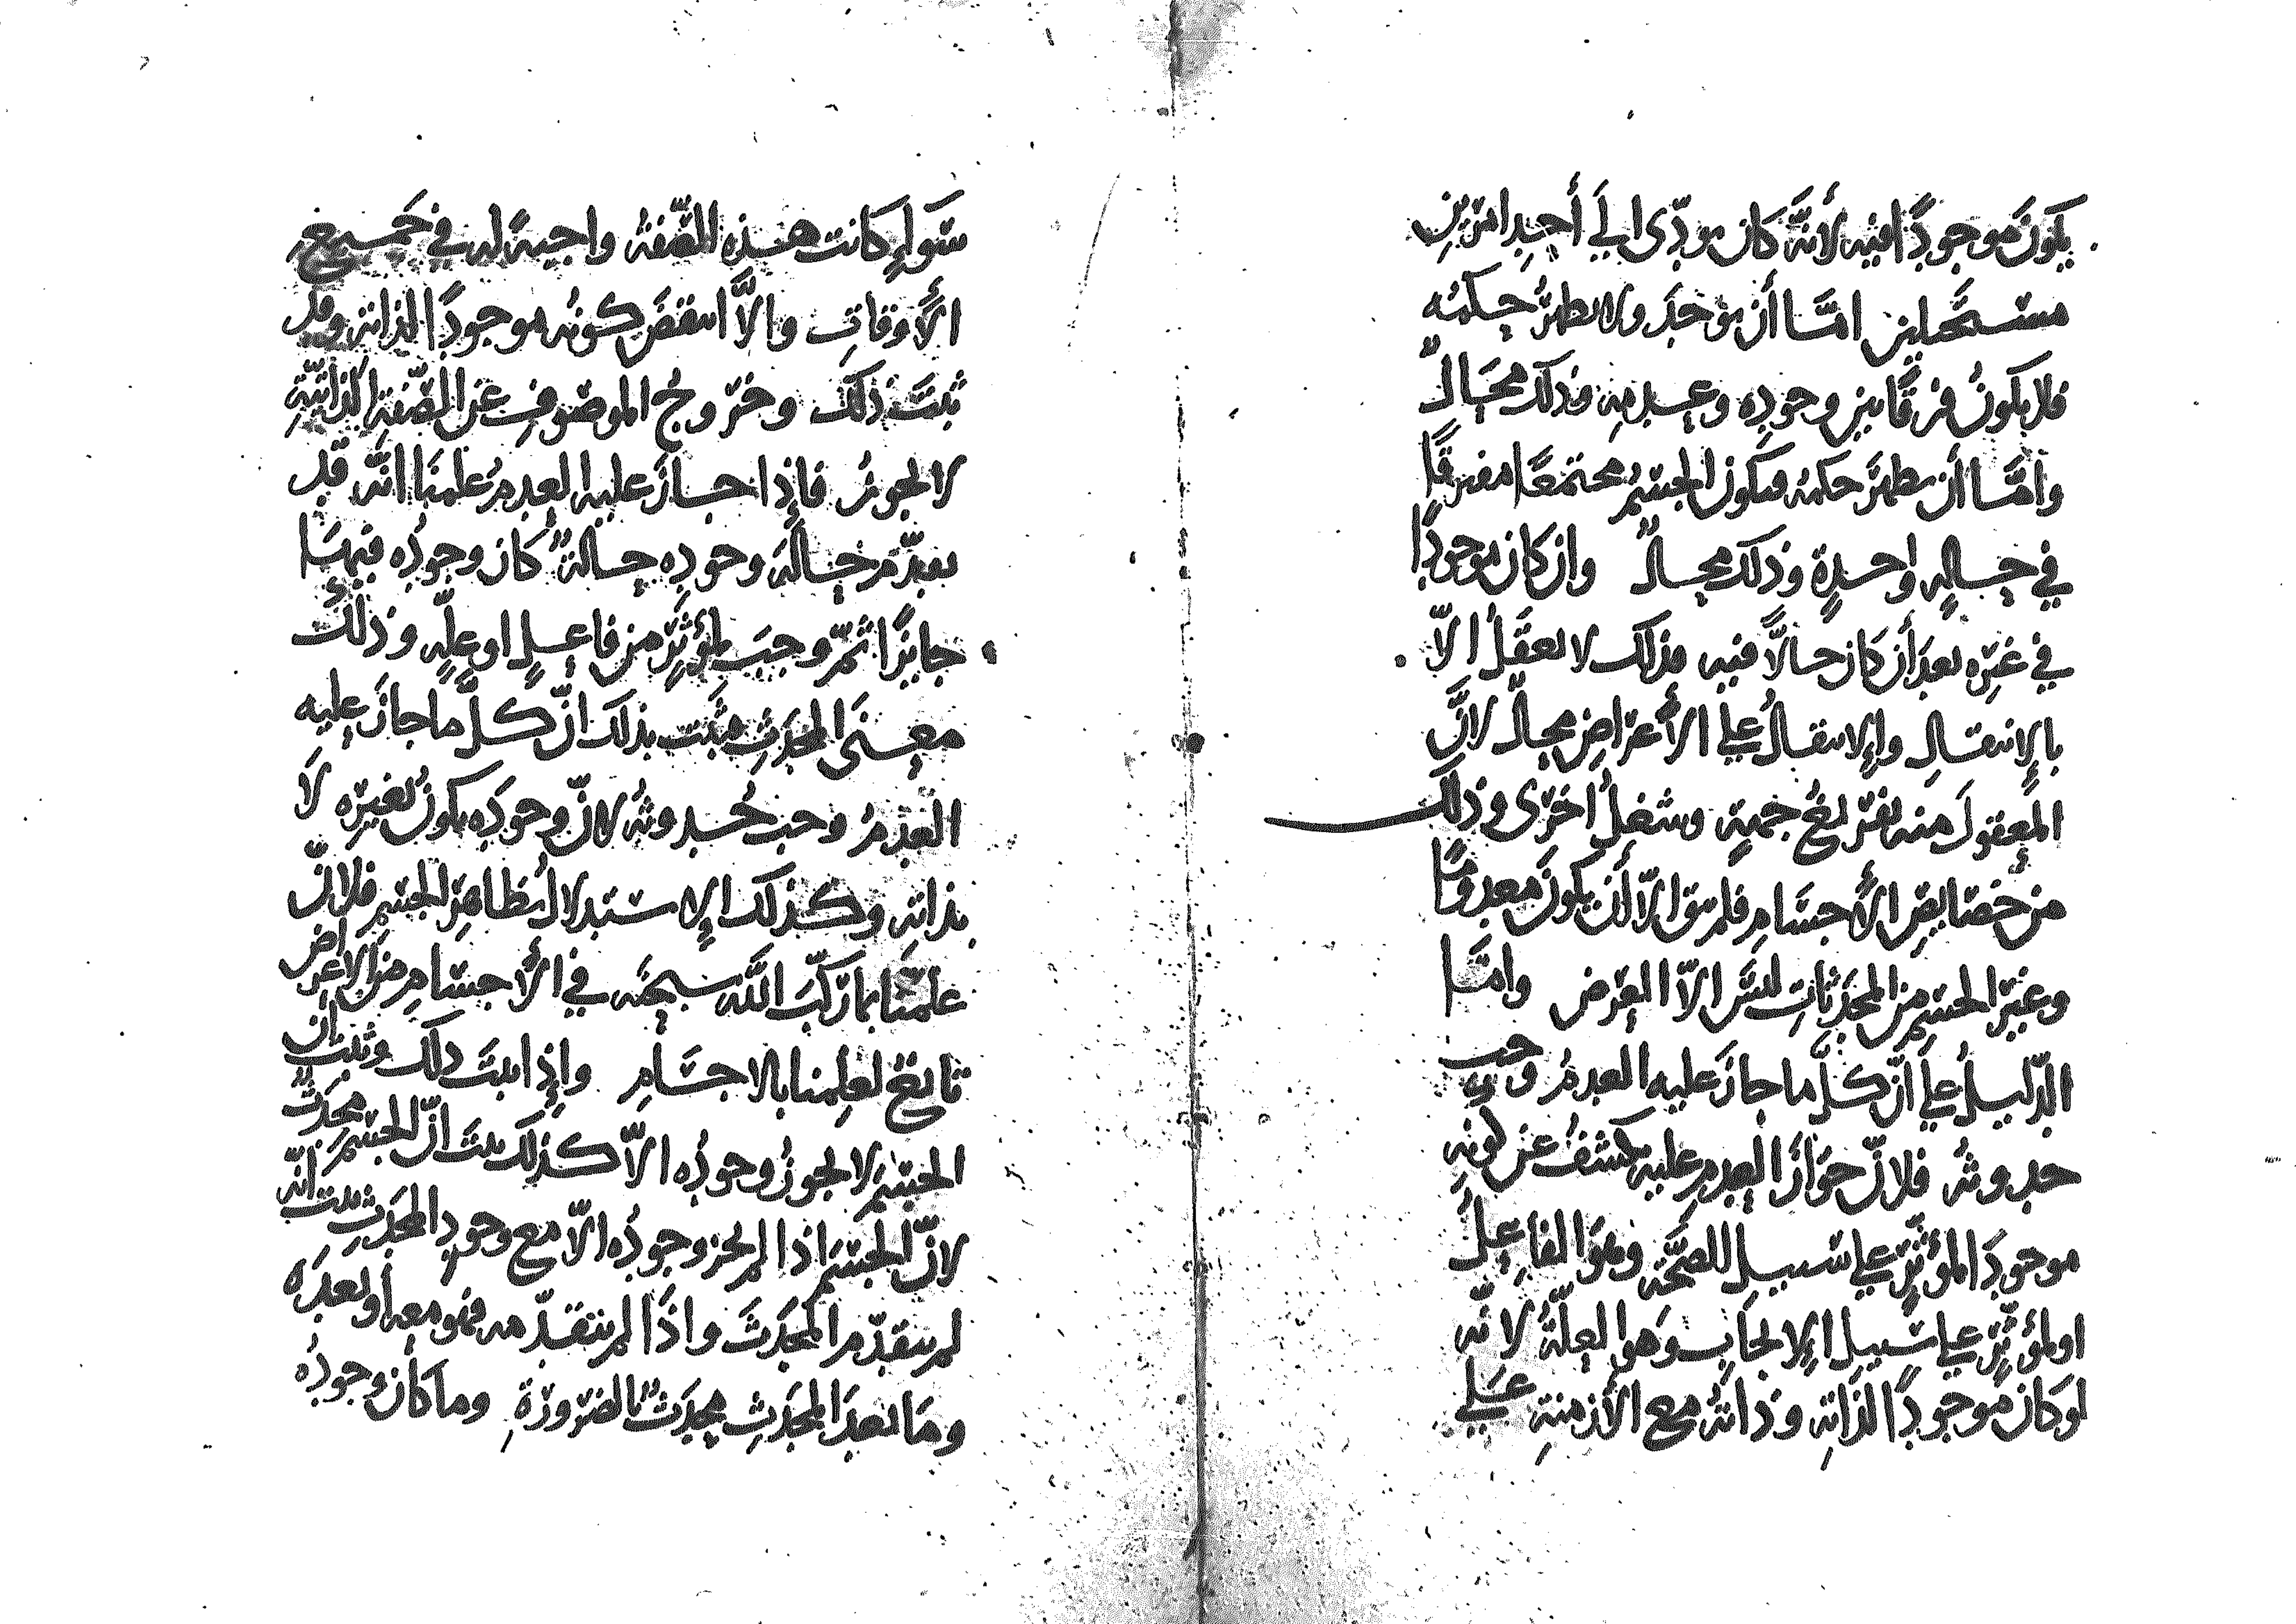 يكونَ موجودًا فيه لأنَّه كان مودّى الى أحد امرين
مستحيلين امّا أن يوجد ولا يظهرُ حكمُه
فلا يكونُ فرقًا بين وجودِه وعدمِه وذلك محالٌ
وامّا أن يظهرَ حكمُه فيكون الجسمُ مجتمعًا مفترقًا
في حالةٍ واحدةٍ وذلك محالٌ وان كان موجودًا
في غيرِه بعد أن كان حالًّا فيه فذلك لا يعقَلُ الّا
بالإنتقالِ والإنتقالُ على الأعراضِ محالٌ لانَّ
المعقولَ منه تفريغُ جهةٍ وشغلُ اخرى وذلك
من خصايصِ الأجسامِ فلم يبق الّا أن يكونَ معدومًا
وغيرُ الجسمِ من المحدَثاتِ ليس الّا العرض وامّا
الدّليلُ على انّ كلَّ ما جازَ عليه العدمُ وجب
حدوثُه فلانّ جوازَ العدمِ عليه يكشفُ عن كونِه
موجودًا لمؤثّرٍ على سبيلِ الصحّة وهوَ الفاعِلُ
او لمؤثّرٍ على سبيلِ الإيجابِ وهو العلّةُ لانّه
لو كان موجودًا لذاتِه وذاتُه مع الأزمنةِ على
سَوآءٍ كانت هذه الصّفةُ واجبةً له في جميعِ
الأوقاتِ والاَّ انتقضَ كونُه موجودًا لذاته وقد
ثبتَ ذلك وخروجُ الموصوفِ عن الصّفةِ الذاتيّةِ
لا يجوزُ فإذا جازَ عليه العدمُ علمنا انّه قد
تقدّمَ حالةَ وجودِه حالةٌ كان وجودُه فيها
جايزًا ثمّ وجبَ لمؤثّرٍ من فاعلٍ او علّةٍ وذلك
معنى المحدَثِ فثبت بذلك انّ كلَّ ما جازَ عليه
العدمُ وجب حُدوثُه لانّ وجودَه يكونُ لغيرِه لا
لذاتِه وكذلك الإستدلالُ بظاهرِ الجسمِ فلانّ
علمنا بما ركّبَ اللّه سبحنه في الأجسامِ من الاعراض
تابعٌ لعلمنا بالاجسامِ وإذا ثبتَ ذلك وثبت ان
الجسمَ لا يجوزُ وجودُه الاّ كذلك ثبتَ انّ الجسمَ محدَثٌ
لانّ الجسمَ اذا لم يجز وجودُه الاّ مع وجودِ المحدَثِ ثبت انّه
لم يتقدّمِ المحدَثَ واذا لم يتقدّمه فهو معه او بعدَه
وما بعدَ المحدَثِ محدَثٌ بالضرورةِ وما كان وجودُه